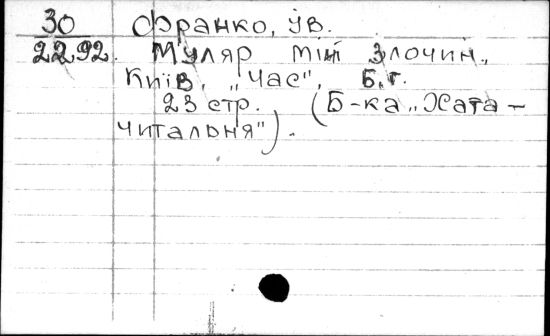 30 Франко, Ів.
2292. Муляр мій злочин.
Київ, „Час", Б.г.
23 стр. (Б-ка „Хата-
читальня").